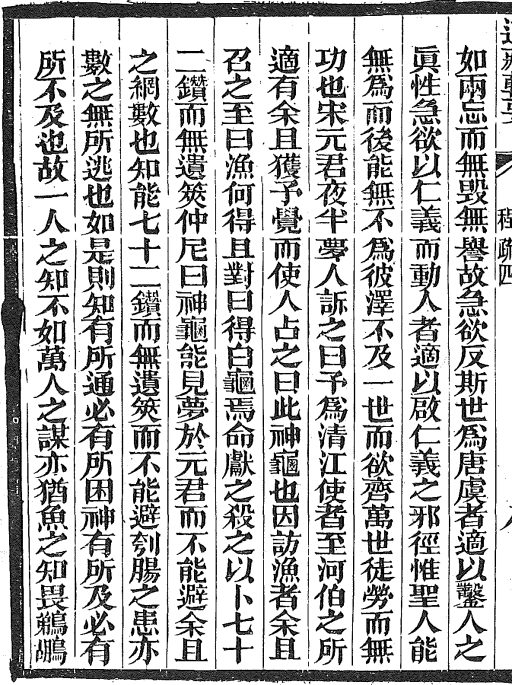 程疏四
如兩忘而無毁無譽故急欲反斯世爲唐虞者適以鑿人之
眞性急欲以仁義而動人者適以啟仁義之邪徑惟聖人能
無爲而後能無不爲彼澤不及一世而欲齊萬世徒勞而無
功也宋元君夜半夢人訴之曰予爲清江使者至河伯之所
適有余且獲予覺而使人占之曰此神龜也因訪漁者余且
召之至曰漁何得且對曰得白龜焉命獻之殺之以卜七十
二鑽而無遺筴仲尼曰神龜能見夢於元君而不能避余且
之網數也知能七十二鑽而無遺筴而不能避刳腸之患亦
數之無所逃也如是則知有所通必有所困神有所及必有
所不及也故一人之知不如萬人之謀亦猶魚之知畏鵜鶘